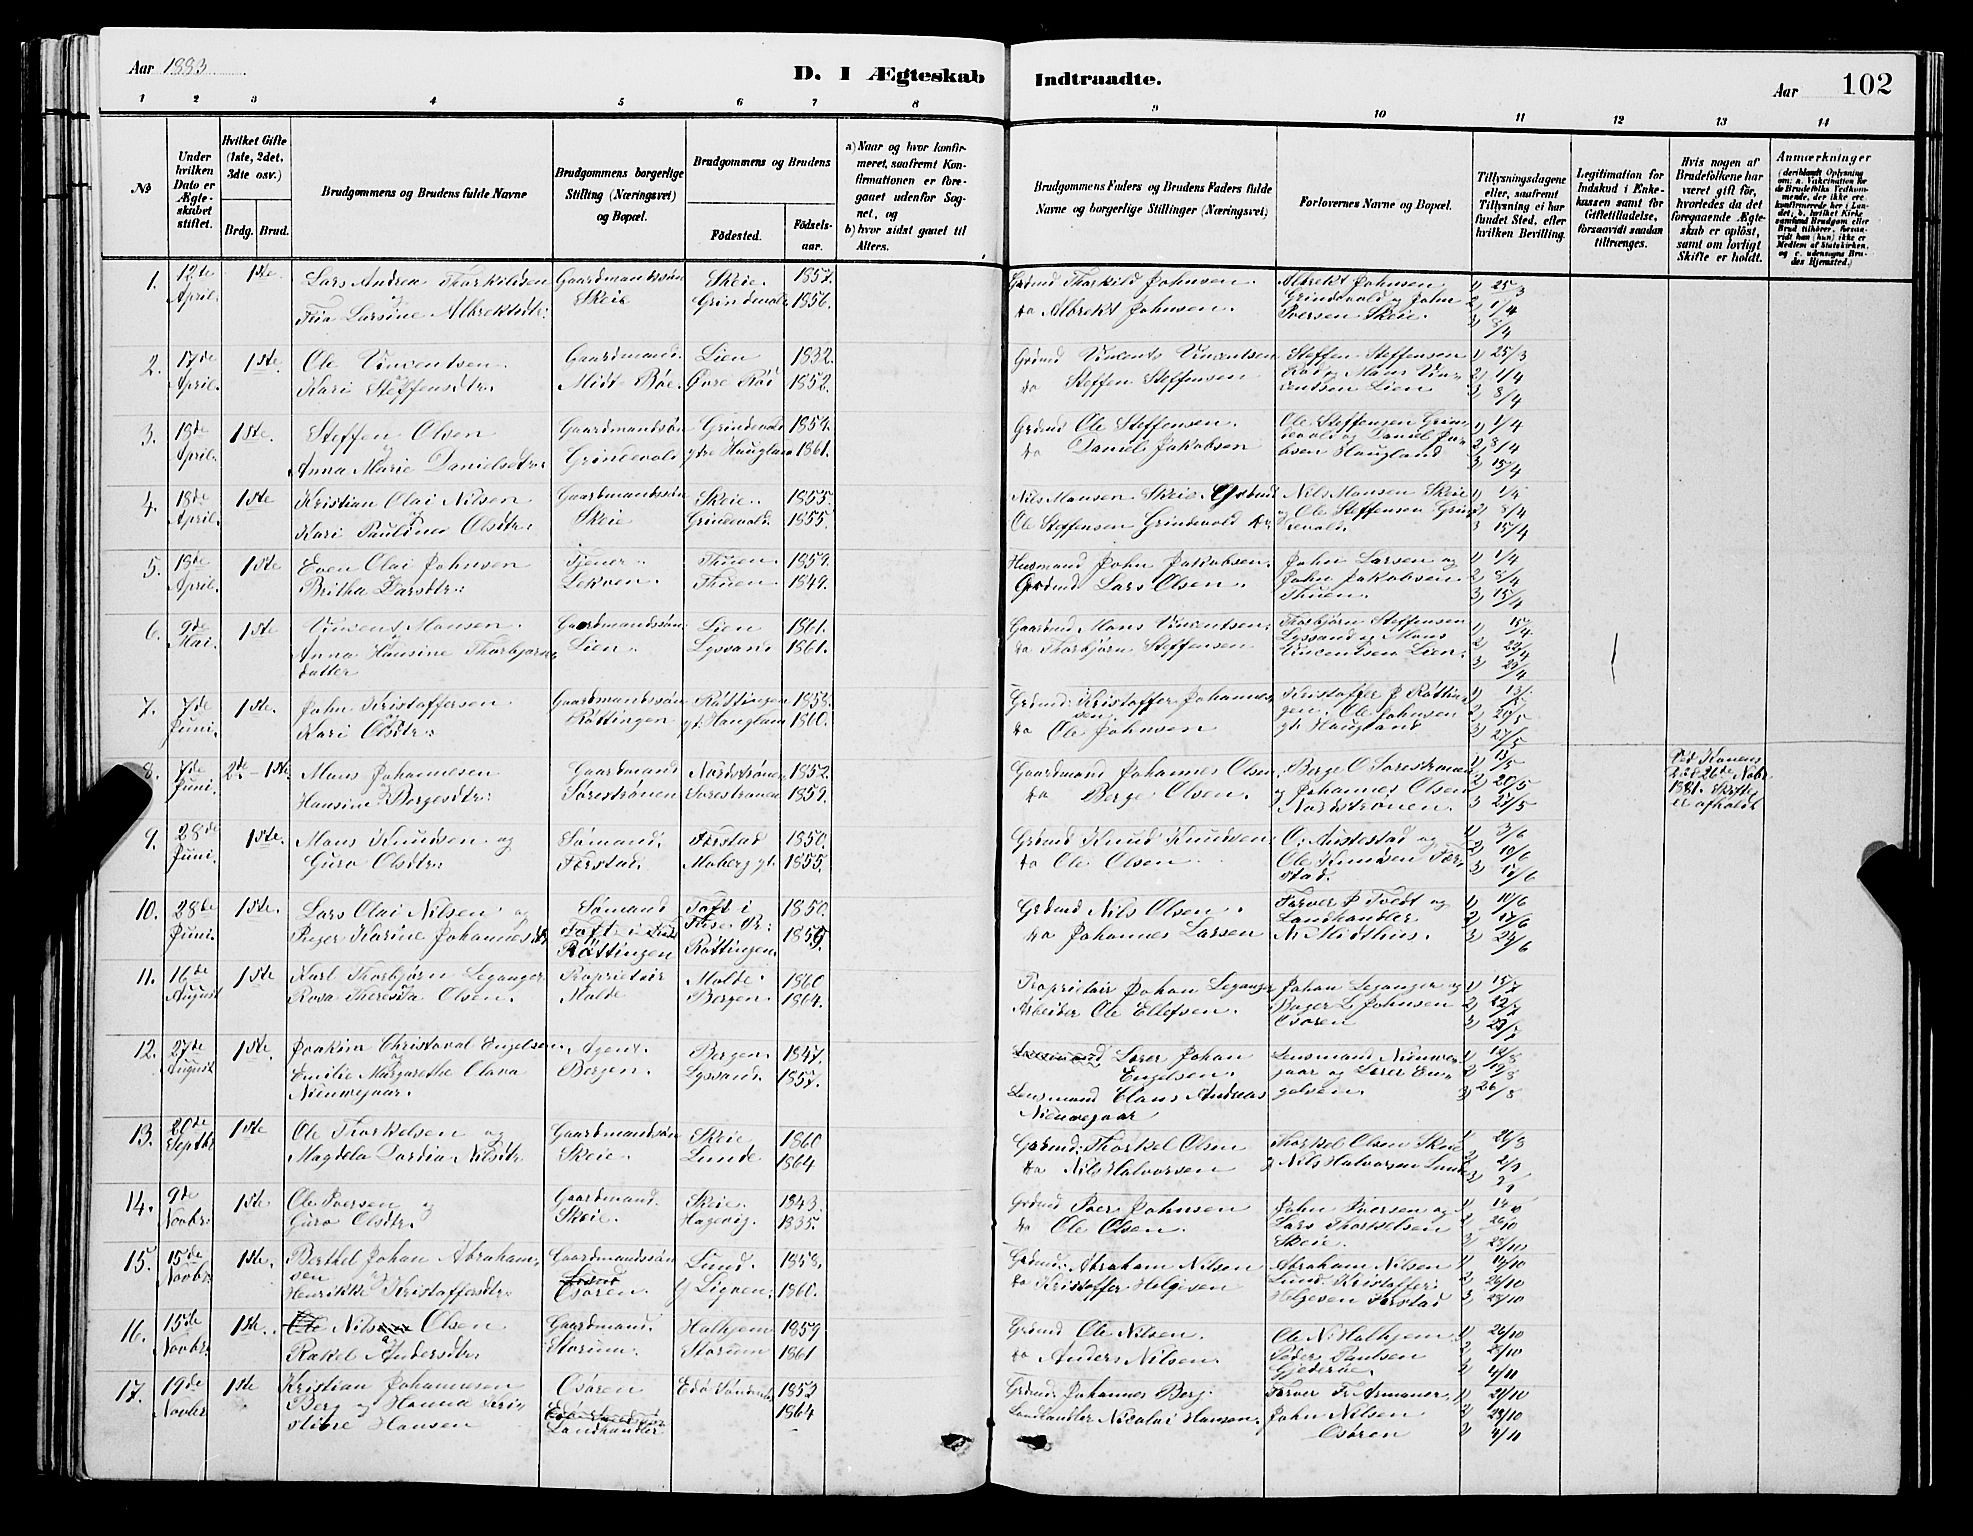 Aar 1883
D. I Ægteskab Indtraadte.
Aar 102
1 2 3 4 5 6 7 8 9 10 11 12 13 14
№
Under hvilken Dato er Ægteskabet stiftet.
Hvilket Gifte (1ste, 2det, 3die osv.)
Brdg. Brud.
Brudgommens og Brudens fulde Navne
Brudgommens borgerlige Stilling (Næringsvei) og Bopæl.
Brudgommens og Brudens
Fødested. Fødselsaar.
a) Naar og hvor konfirmeret, saafremt Konfirmationen er foregaaet udenfor Sognet, og
b) hvor sidst gaaet til Alters.
Brudgommens Faders og Brudens Faders fulde Navne og borgerlige Stillinger (Næringsvei)
Forlovernes Navne og Bopæl.
Tillysningsdagene eller, saafremt Tillysning ei har fundet Sted, efter hvilken Bevilling.
Legitimation for Indskud i Enkekassen samt for Giftetilladelse, forsaavidt saadan tiltrænges.
Hvis nogen af Brudefolkene har været gift før, hvorledes da det foregaaende Ægteskab er opløst, samt om lovligt Skifte er holdt.
Anmærkninger
1. 12te April. 1ste Lars Andrea Thorkildsen Gaardmandssøn Skeie. 1857. Grdmd Thorkild Johnsen. Albrekt Johnsen 1) 25/3
og Fria Larsine Albrektsdtr: Skeie Grindevold 1856. do Albrekt Johnsen. Grindevold og John Iversen Skeie. 2) 1/4 3) 8/4
2. 17de April. 1ste Ole Vincentsen Gaardmand. Lien 1832. Grdmd Vincents Vincentsen Steffen Steffensen 1) 25/3
og Kari Steffensdtr. Midt-Bøe. Øvre Rød 1852. do Steffen Steffensen Rød og Mons Vincentsen Lien 2) 1/4 3) 8/4
3. 18de April. 1ste. Steffen Olsen Gaardmandssøn Grindevold 1854. Grdmd Ole Steffensen. Ole Steffensen Grindevold og Daniel Jakobsen Haugland 1) 1/4
og Anna Marie Danielsdtr. Grindevold ytre Haugland 1861. do Daniel Jakobsen 2) 8/4 3) 15/4
4. 18de April. 1ste Kristian Olai Nilsen Gaardmandssøn Skeie. 1855 Nils Monsen Skeie. Grdmd Nils Monsen Skeie 1) 1/4
Kari Pauline Olsdtr. Skeie Grindevold. 1855. Ole Steffensen Grindevold do og Ole Steffensen Grindevold. 2) 8/4 3) 15/4
5. 18de April. 1ste Even Olai Johnsen Tjener. Thuen. 1859. Husmand John Jakobsen. John Larsen og 1) 1/4
Britha Larsdtr: Lekven. Thuen. 1849. Grdmd Lars Olsen. John Jakobsen Thuen. 2) 8/4 3) 15/4
6. 9de Mai. 1ste Vincent Monsen. Gaardmandssøn Lien 1861. Gaardmd Mons Vincentsen: Thorbjørn Steffensen 1) 15/4
Anna Hansine Thorbjørnsdatter Lien. Lyssand 1861. do Thorbjørn Steffensen Lyssand og Mons Vincentsen Lien. 2) 22/4 3) 29/4
7. 7de Juni. 1ste. John Kristoffersen Gaardmandssøn Røttingen 1858. Grdmd: Kristoffer Johannessen. Kristoffer J Røttingen. Ole Johnsen 1) 13/5
og Kari Olsdtr: Røttingen yt. Haugland 1860. do Ole Johnsen yt. Haugland 2) 20/5 3) 27/5
8. 7de Juni. 2de 1ste Mons Johannesen Gaardmand Nordstrønen 1852. Gaardmand Johannes Olsen Berge O Sørestrønen 1) 13/5 Ved Konens Død 26de Novbr. 1881. Skifte er afholdt
Hansine Bergesdtr: Sørestrønen Sørestrønen 1859. do Berge Olsen. og Johannes Olsen Nordstrønen. 2) 20/5 3) 27/5
9. 28de Juni. 1ste. Mons Knudsen og Sømand, Førstad 1850. Grdmd Knud Knudsen O. Austestad og 1) 3/6
Guro Olsdtr. Førstad. Moberg yt. 1855. do Ole Olsen Ole Knudsen Førstad. 2) 10/6 3) 17/6
10. 28de Juni. 1ste. Lars Olai Nilsen og Sømand Toft i 1850. Grdmd Nils Olsen. Farver P Tvedt og 1) 10/6
Inger Karine Johannesdtr Toft i Fuse Røttingen Fuse Pr: Røttingen 1856. do Johannes Larsen Landhandler N. Midthus. 2) 17/6 3) 24/6
11. 16de August 1ste Karl Thorbjørn Leganger Proprietair Molde. 1860 Proprietair Johan Leganger Johan Leganger og 1) 15/7
og Rosa Theresita Olsen. Molde Bergen. 1864. Arbeider Ole Ellefsen. Bager L Johnsen Osøren 2) 22/7 3) 29/7
12. 27de August 1ste Joakim Christoval Engelsen Agent. Bergen. 1847. Lærer Johan Engelsen. Lensmand Nieuwejaar og Lærer Engelsen. 1) 12/8
og Emilie Margarethe Clava Nieuwejaar. Bergen. Lyssand. 1857. Lensmand Claus Andreas Nieuwejaar 2) 19/8 3) 26/8
13. 20de Septbr 1ste Ole Thorkelsen og Gaardmandssøn Skeie 1860 Grdmd: Thorkel Olsen Thorkel Olsen Skeie 1) 26/8
Magdela Nilsdtr Skeie. Lunde 1864 do Nils Halvorsen og Nils Halvorsen Lunde 2) 2/9 3) 9/9
14. 9de Novbr: 1ste Ole Iversen og Gaardmand. Skeie. 1843. Grdmd Iver Johnsen John Iversen og 1) 14/10
Guro Olsdtr. Skeie. Hagevig. 1835. do Ole Olsen. Lars Thorkelsen Skeie. 2) 3) 28/10
15. 15de Novbr. 1ste. Berthel Johan Abrahamsen Gaardmandssøn Lund. 1858. Grdmd: Abraham Nilsen Abraham Nilsen 1) 14/10
og Henrikke Kristoffersdtr. Osøren. Lignen. 1860. do Kristoffer Helgesen Lund. Kristoffer Helgesen Førstad 2) 3) 28/10
16. 15de Novbr. 1ste. Nils Olsen Gaardmand. Halhjem 1859 Grdmd Ole Nilsen. Ole N. Halhjem 1)
og Rakel Andersdtr. Storum. Storum 1861 do Anders Nilsen. Peder Paulsen Gjederøe. 2) 28/10 3) 4/11
17. 19de Novbr 1ste Kristian Johannesen Osøren Edø Søndmøre 1852 Grdmd: Johannes Berg. Farver Fr. Armauer, 1) 21/10
Berg og Hanna Kristine Hansen Landhandler 1864 Landhandler Nicolai Hansen. John Nilsen Osøren 2) 28/10 3) 4/11